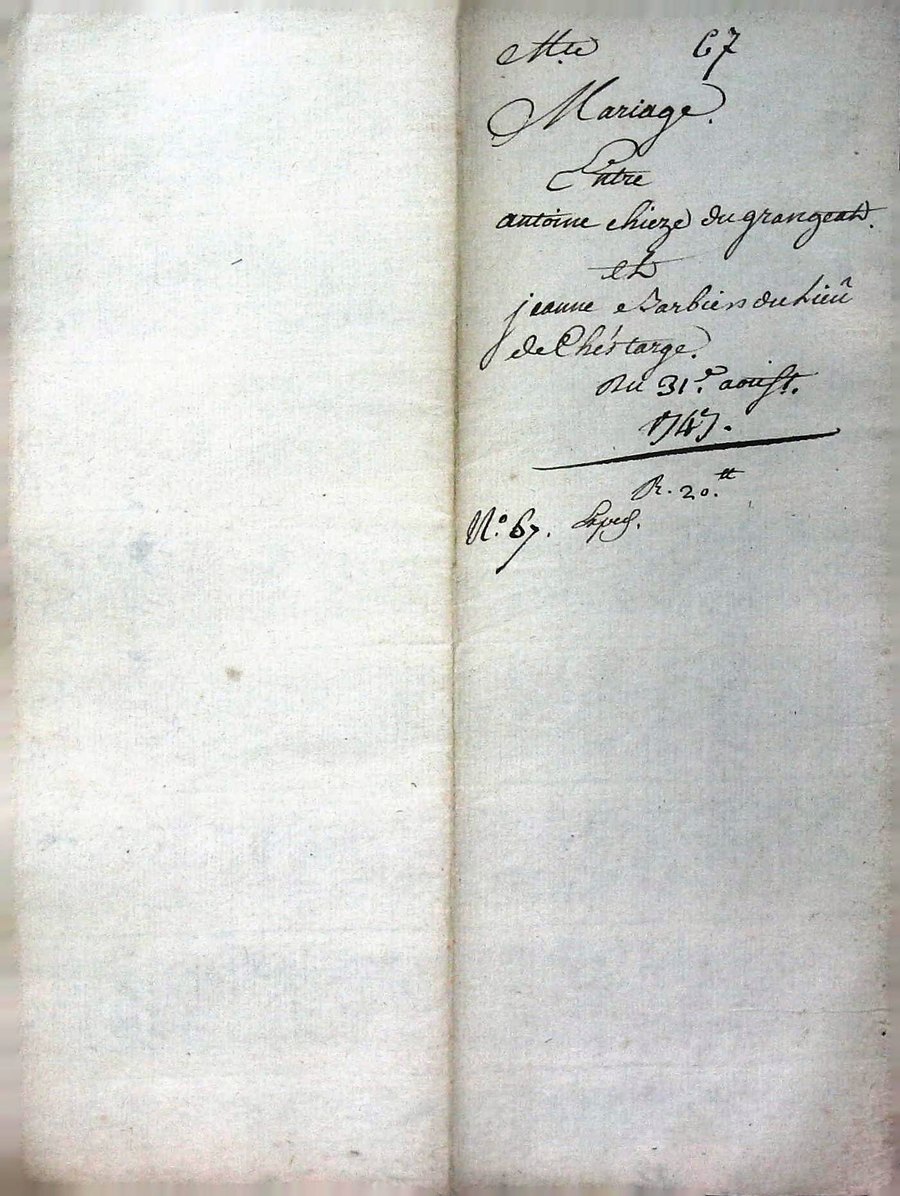 67
Mariage.
Entre
antoine chieze du grangeat.
et
jeanne du Lieû
de Chéstarge.
Du 31.e aoust.
1747.
R. 20.tt
N.o 67.